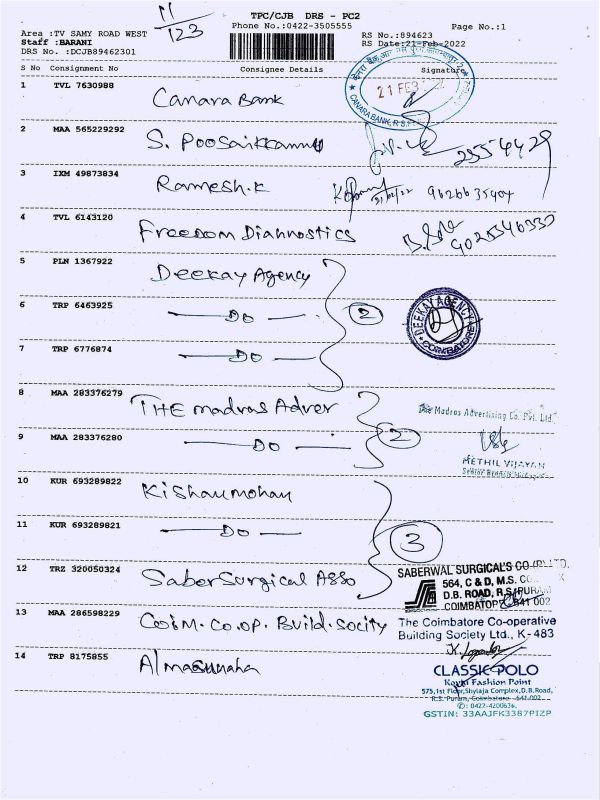 11/123
TPC/CJB DRS - PC2
Phone No.:0422-3505555
Page No.:1
Area :TV SAMY ROAD WEST
Staff :BARANI
DRS No. :DCJB89462301
RS No.:894623
RS Date:21-Feb-2022
S No Consignment No Consignee Details Signature
1 TVL 7630988 Canara Bank
21 FEB
CANARA BANK, R.S.
2 MAA 565229292 S. Poosaikkannu
25554429
3 IXM 49873834 Ramesh.K
21/02/22 9626635404
4 TVL 6143120 Freedom Diannostics
5 PLN 1367922 Deekay Agency
6 TRP 6463925 — Do — 2
DEEKAY AGENCY
COIMBATORE
7 TRP 6776874 — Do —
8 MAA 283376279 THE madras Adver
The Madras Advertising Co. Pvt. Ltd.
9 MAA 283376280 — Do — 2
METHIL VIJAYAN
10 KUR 693289822 Kishanmohan
11 KUR 693289821 — Do — 3
12 TRZ 320050324 Saber Surgical Asso
SABERWAL SURGICAL'S CO.(P) LTD.
564, C & D, M.S. CO
D.B. ROAD, R.S. PURAM
COIMBATORE 641 002
13 MAA 286598229 Coim.co.op. Build.socity
The Coimbatore Co-operative
Building Society Ltd., K-483
14 TRP 8175855
CLASSIC POLO
Kovai Fashion Point
575,1st Floor,Shylaja Complex,D.B.Road,
R.S. Puram, Coimbatore - 641 002
✆: 0422-4200636,
GSTIN: 33AAJFK3387P1ZP